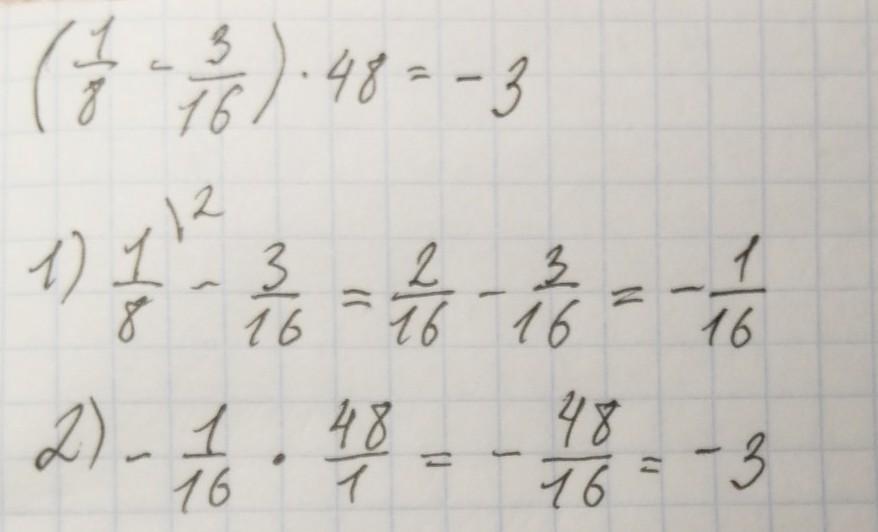 (1/8 - 3/16) · 48 = -3
1) 1/8 \2 - 3/16 = 2/16 - 3/16 = - 1/16
2) - 1/16 · 48/1 = - 48/16 = -3